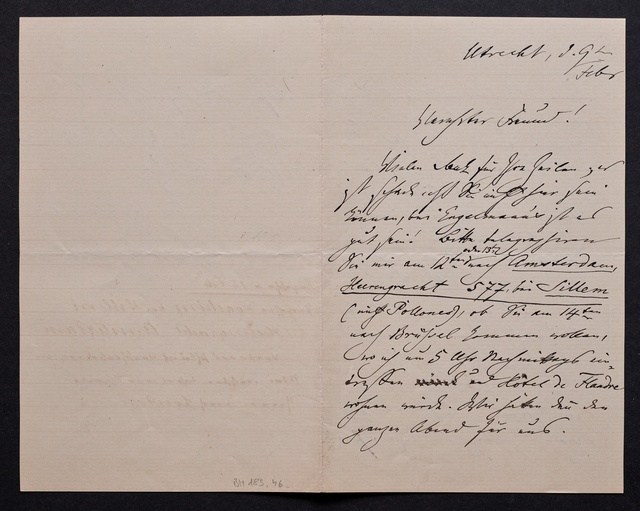 Utrecht, d. 9ten
Febr
Verehrter Freund!
Vielen Dank für Ihre Zeilen, es
ist schade, daß Sie nicht hier sein
können, bei Engelmann's ist es
gut sein! Bitte telegraphiren
oder 13t.
Sie mir am 12ten nach Amsterdam,
Heerengracht 577, bei Sillem
(nicht Pollones), ob Sie am 14ten
nach Brüssel kommen wollen,
wo ich um 5 Uhr Nachmittags ein-
treffen und Hôtel de Flandre
wohnen würde. Wir hätten dann den
ganzen Abend für uns.
BH 183, 46